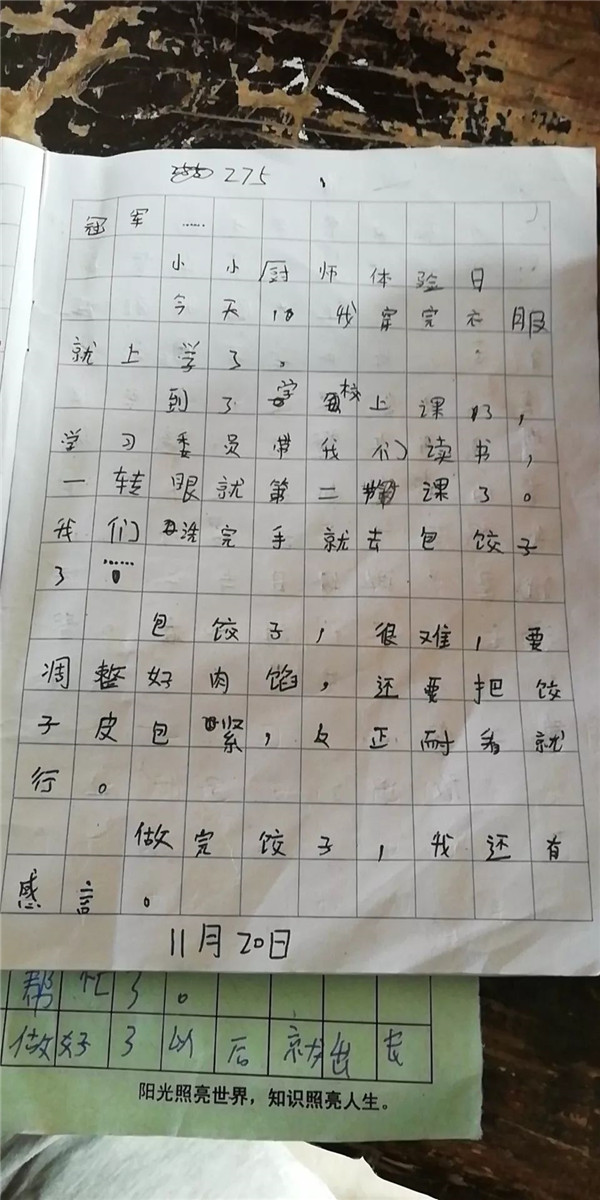 275
冠军……
小小厨师体验日
今天,我穿完衣服
就上学了。
到了学校上课时,
学习委员带我们读书,
一转眼就第二节课了。
我们洗完手就去包饺子
了……
包饺子,很难,要
凋整好肉馅,还要把饺
子皮包紧,反正耐看就
行。
做完饺子,我还有
感言。
11月20日
帮忙了。
做好了以后就出去
阳光照亮世界，知识照亮人生。